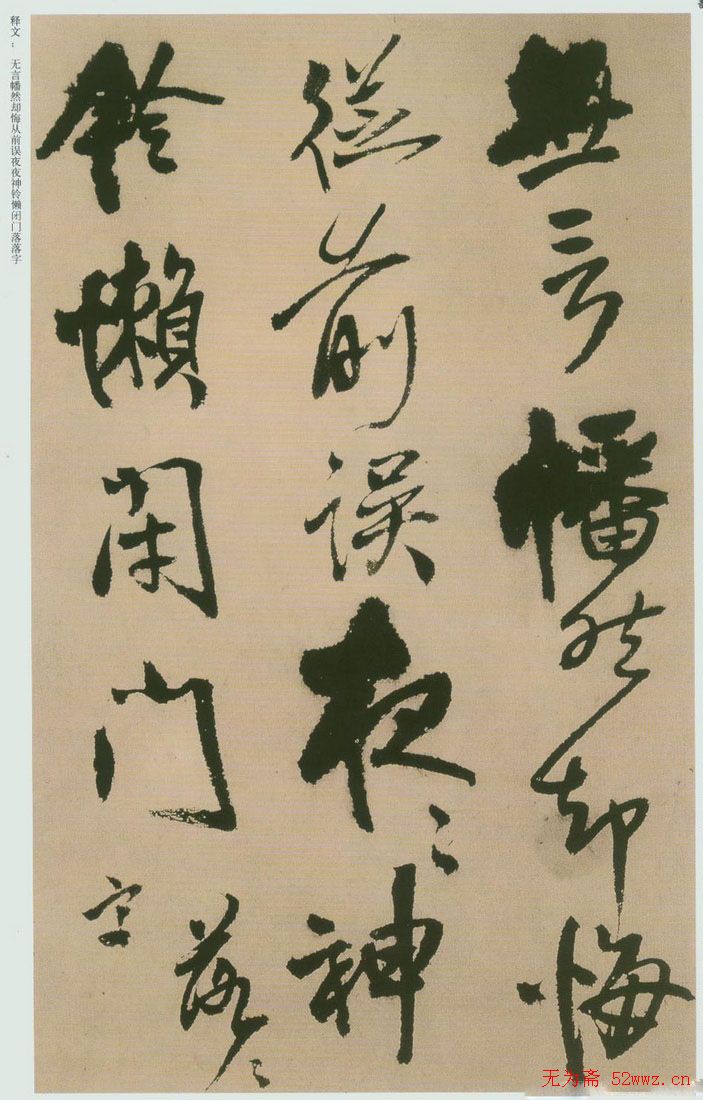 無言幡然却悔
從前誤夜〻神
鈴懶閉門
落〻
字
释文：无言幡然却悔从前误夜夜神铃懒闭门落落字
无为斋 52wwz.cn